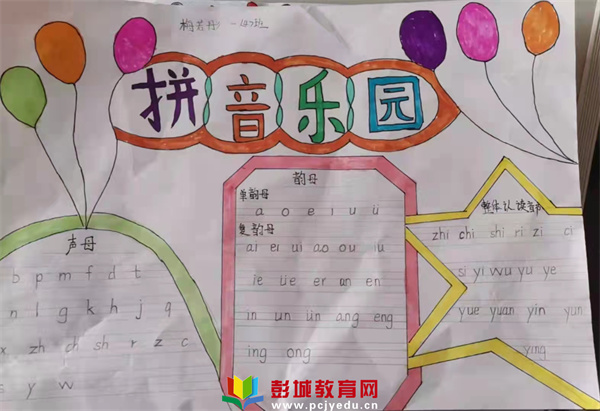 拼音乐园
声母
b p m f d t
n l g k h j q
x zh ch sh r z c
s y w
韵母
单韵母
a o e i u ü
复韵母
ai ei ui ao ou iu
ie üe er an en
in un ün ang eng
ing ong
整体认读音节
zhi chi shi ri zi ci
si yi wu yu ye
yue yuan yin yun
ying
彭城教育网
www.pcjyedu.cn